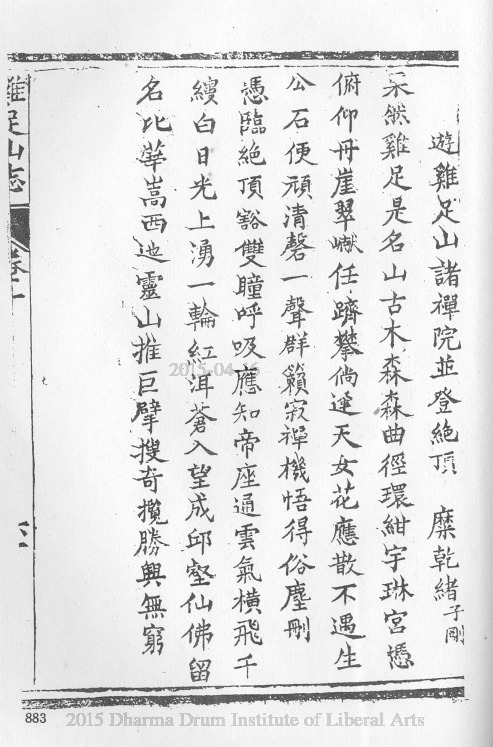 遊雞足山諸禪院並登絕頂　糜乾緒子剛
果然雞足是名山古木森森曲徑環紺宇琳宮憑
俯仰丹崖翠巘任躋攀倘逢天女花應散不遇生
公石便頑清磬一聲群籟寂禪機悟得俗塵刪
憑臨絕頂豁雙瞳呼吸應知帝座通雲氣橫飛千
縵白日光上湧一輪紅洱蒼入望成邱壑仙佛留
名比華嵩西迤靈山推巨擘搜奇攬勝興無窮
雞足山志
卷十
883
2015-04-
2015 Dharma Drum Institute of Liberal Arts